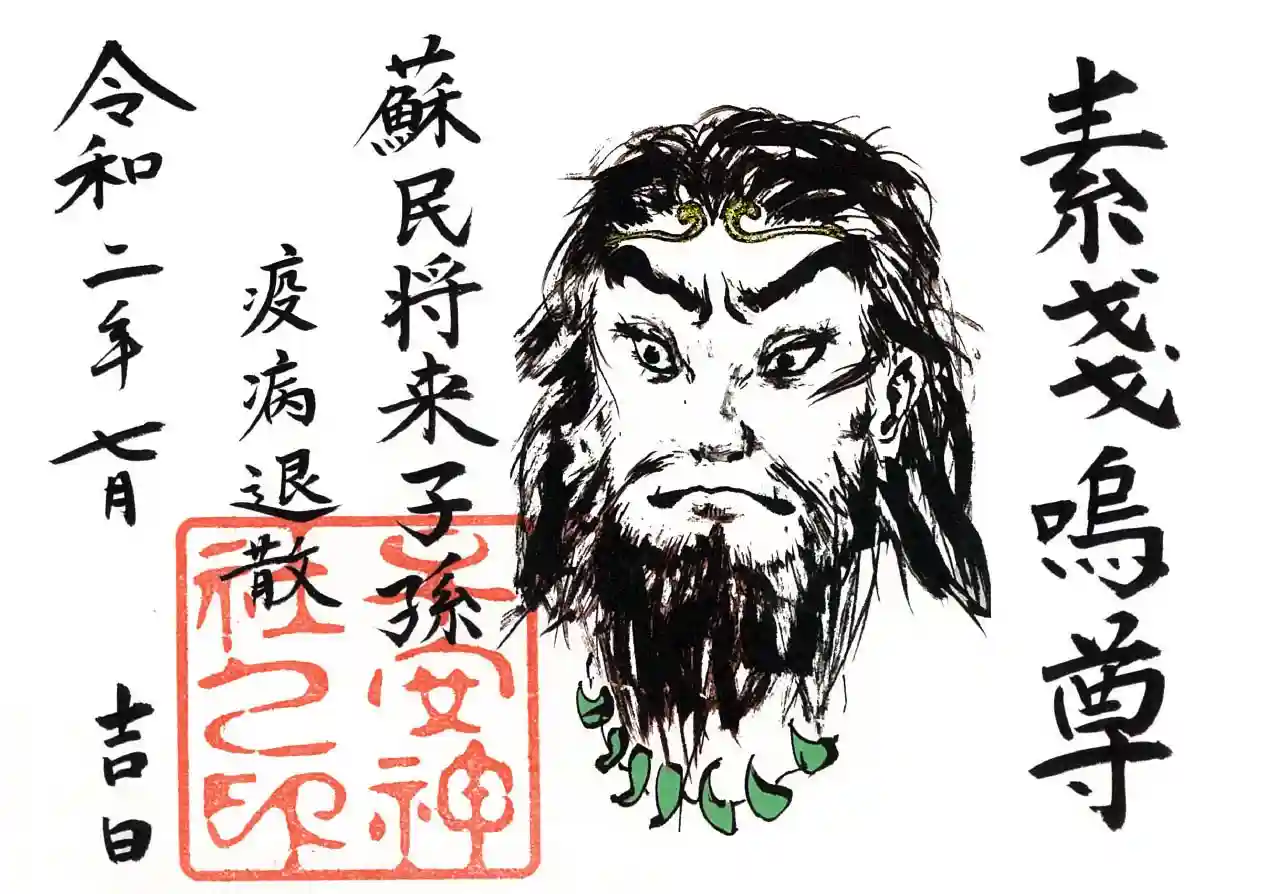 素戔嗚尊
蘇民将来子孫
疫病退散
令和二年七月 吉日
子安神
社之印